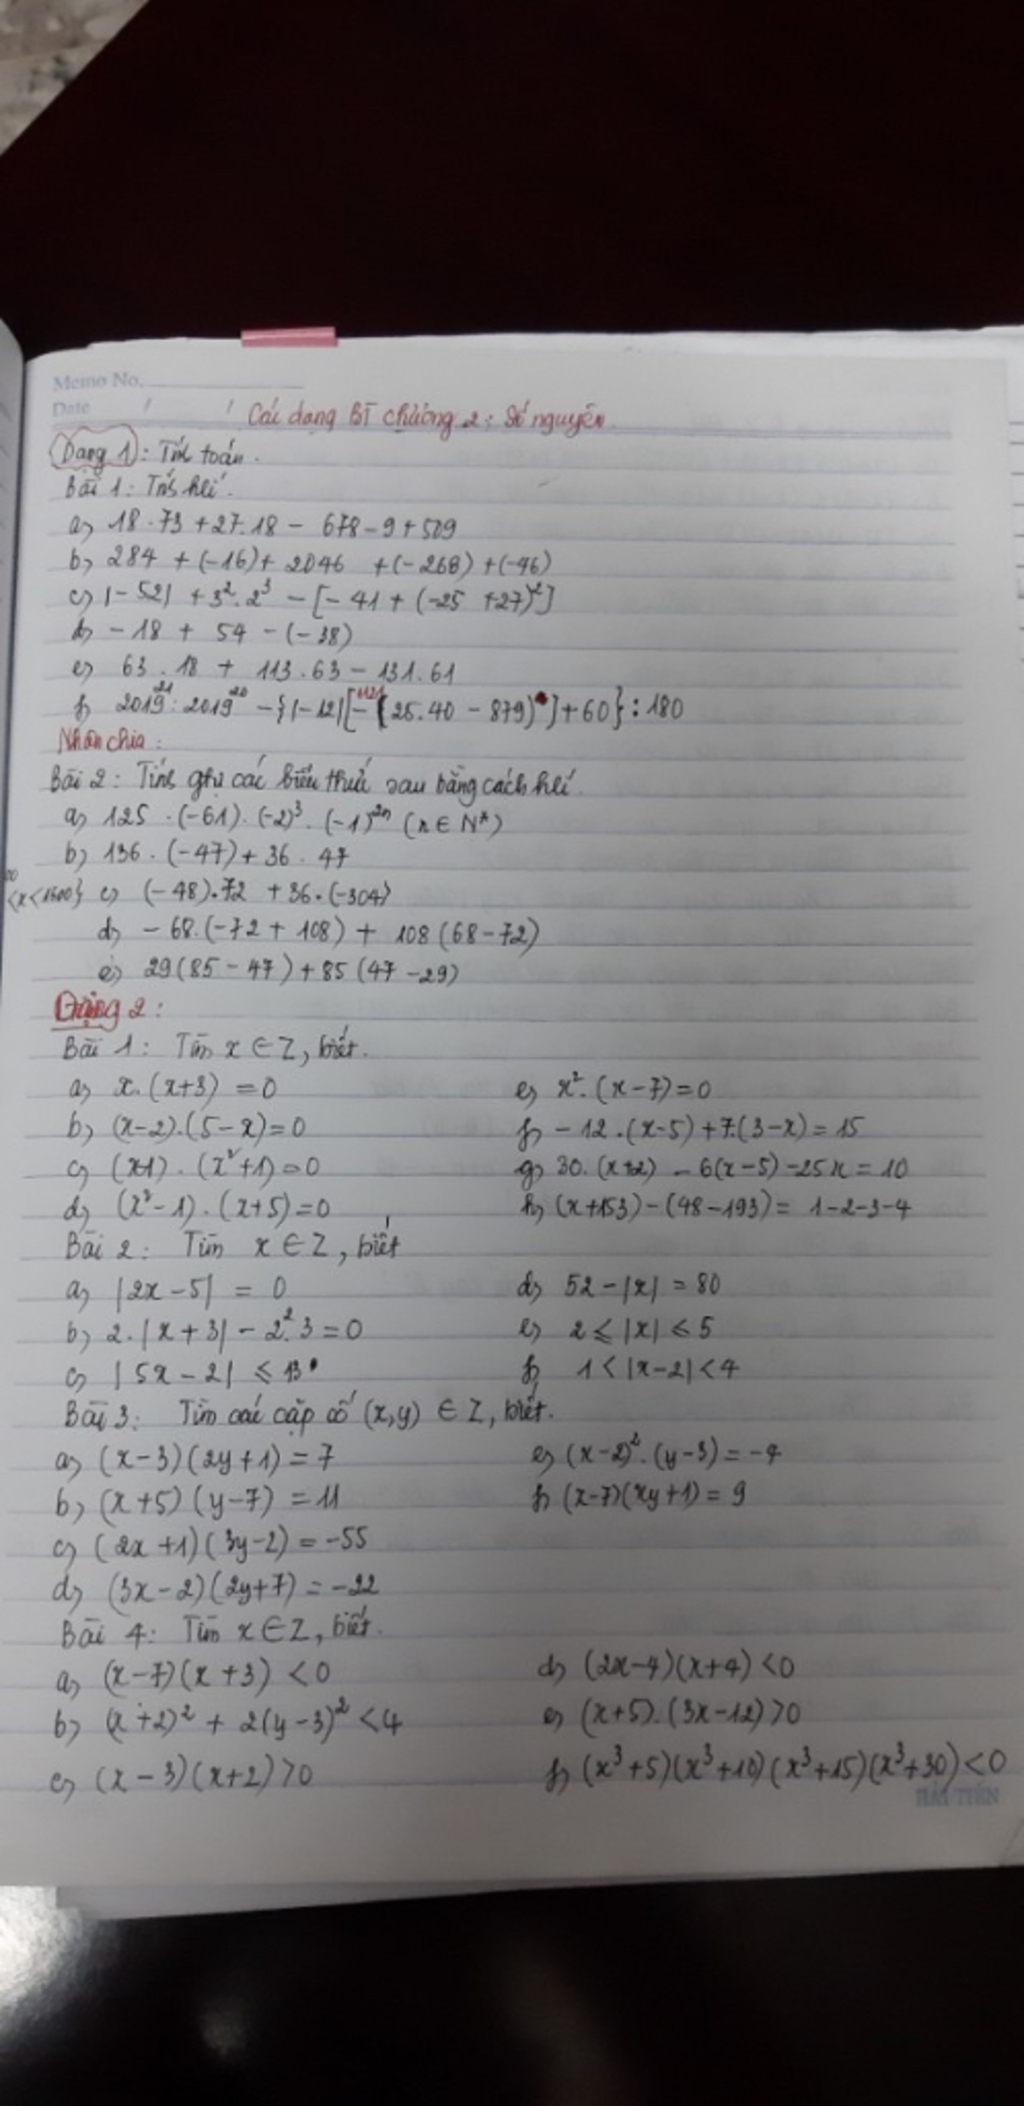 Memo No.
Date / /
Các dạng BT chương 2: Số nguyên.
Dạng 1: Tính toán.
Bài 1: Tính hlí.
a, 18.73 + 27.18 - 678 - 9 + 509
b, 284 + (-16) + 2046 + (-268) + (-46)
c, |-52| + 3².2³ - [-41 + (-25 + 27)²]
d, -18 + 54 - (-38)
e, 63.18 + 113.63 - 131.61
f, 2019²¹ : 2019²⁰ - {|-12|[- (25.40 - 879)] + 60} : 180
Nhân chia:
Bài 2: Tính gtrị các biểu thức sau bằng cách hlí.
a, 125 . (-61) . (-2)³ . (-1)²ⁿ (n ∈ N*)
b, 136 . (-47) + 36 . 47
<x<1500} c, (-48).72 + 36.(-304)
d, -68.(-72 + 108) + 108(68-72)
e, 29(85-47) + 85(47-29)
Dạng 2:
Bài 1: Tìm x ∈ Z, biết.
a, x.(x+3) = 0 e, x².(x-7)=0
b, (x-2).(5-x)=0 f, -12.(x-5)+7.(3-x)=15
c, (x+1).(x²+1)=0 g, 30.(x+2) - 6(x-5) - 25x = 10
d, (x²-1).(x+5)=0 h, (x+153)-(48-193) = 1-2-3-4
Bài 2: Tìm x ∈ Z, biết
a, |2x-5| = 0 d, 52-|x| = 80
b, 2.|x+3| - 2².3 = 0 e, 2 ≤ |x| ≤ 5
c, |5x-2| ≤ 13 f, 1 < |x-2| < 4
Bài 3: Tìm các cặp số (x,y) ∈ Z, biết.
a, (x-3)(2y+1) = 7 e, (x-2)².(y-3) = -4
b, (x+5)(y-7) = 11 f, (x-7)(xy+1) = 9
c, (2x+1)(3y-2) = -55
d, (3x-2)(2y+7) = -22
Bài 4: Tìm x ∈ Z, biết.
a, (x-7)(x+3) < 0 d, (2x-4)(x+4) < 0
b, (x+2)² + 2(y-3)² < 4 e, (x+5).(3x-12) > 0
c, (x-3)(x+2) > 0 f, (x³+5)(x³+10)(x³+15)(x³+30) < 0
HẢI TIẾN